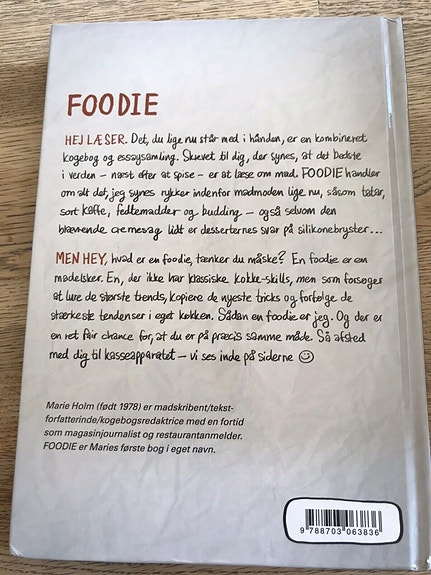 FOODIE
HEJ LÆSER. Det, du lige nu står med i hånden, er en kombineret
kogebog og essaysamling. Skrevet til dig, der synes, at det bedste
i verden – næst efter at spise – er at læse om mad. FOODIE handler
om alt det, jeg synes rykker indenfor madmoden lige nu, såsom tatar,
sort kaffe, fedtemadder og budding – også selvom den
blævrende cremesag lidt er desserternes svar på silikonebryster...
MEN HEY, hvad er en foodie, tænker du måske? En foodie er en
madelsker. En, der ikke har klassiske kokke-skills, men som forsøger
at lure de største trends, kopiere de nyeste tricks og forfølge de
stærkeste tendenser i eget køkken. Sådan en foodie er jeg. Og der er
en ret fair chance for, at du er på præcis samme måde. Så afsted
med dig til kasseapparatet – vi ses inde på siderne ☺
Marie Holm (født 1978) er madskribent/tekst-
forfatterinde/kogebogsredaktrice med en fortid
som magasinjournalist og restaurantanmelder.
FOODIE er Maries første bog i eget navn.
9 788703 063836